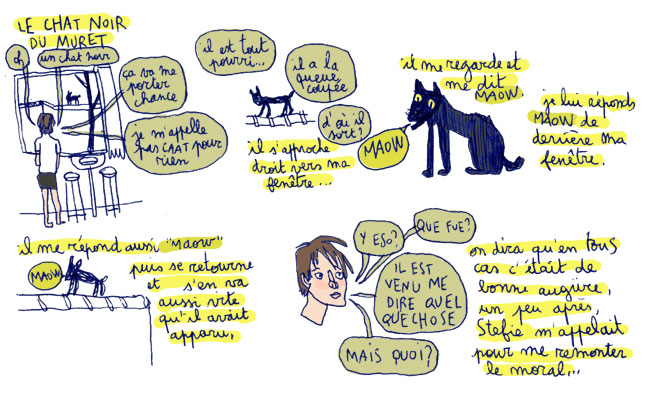 LE CHAT NOIR
DU MURET
oh
un chat noir
ça va me
porter
chance
je m'appelle
pas CAAT pour
rien
il est tout
pourri...
il a la
queue
coupée
d'où il
sort?
il s'approche
droit vers ma
fenêtre...
il me regarde et
me dit
MAOW.
MAOW
je lui réponds
MAOW de
derrière ma
fenêtre.
il me répond aussi "MAOW"
puis se retourne
et s'en va
aussi vite
qu'il avait
apparu.
MAOW
Y ESO?
QUE FUE?
IL EST
VENU ME
DIRE QUEL
QUECHOSE
MAIS QUOI?
on dira qu'en TOUS
cas c'était de
bonne augure,
un peu après,
Stefie m'appelait
pour me remonter
le moral...